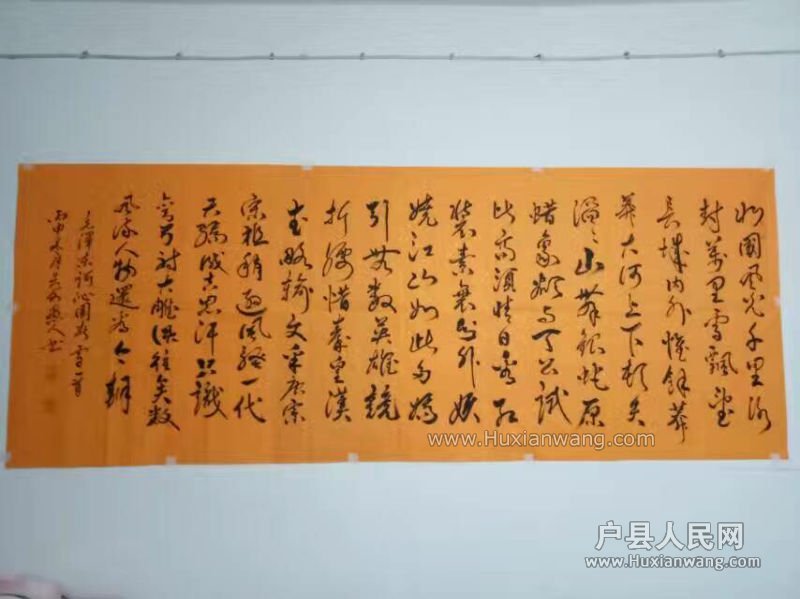 北國風光千里冰
封萬里雪飄望
長城内外惟餘莽
莽大河上下頓失
滔滔山舞銀蛇原
蜡象欲与天公試
比高須晴日看红
裝素裹分外妖
嬈江山如此多嬌
引无数英雄競
折腰惜秦皇漢
武略输文采唐宗
宋祖稍逊風骚一代
天骄成吉思汗只識
弯弓射大雕俱往矣数
風流人物還看今朝
毛泽东词沁園春雪一首
丙申冬月 书
www.Huxianwang.com
户县人民网
www.Huxianwang.com